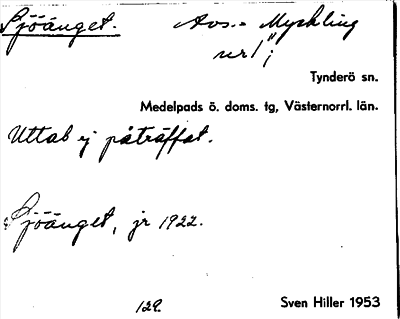 Sjöänget. Avs.= Myckling
nr 1";
Tynderö sn.
Medelpads ö. doms. tg, Västernorrl. län.
Uttal ej påträffat.
Sjöänget, jr 1922.
129.
Sven Hiller 1953